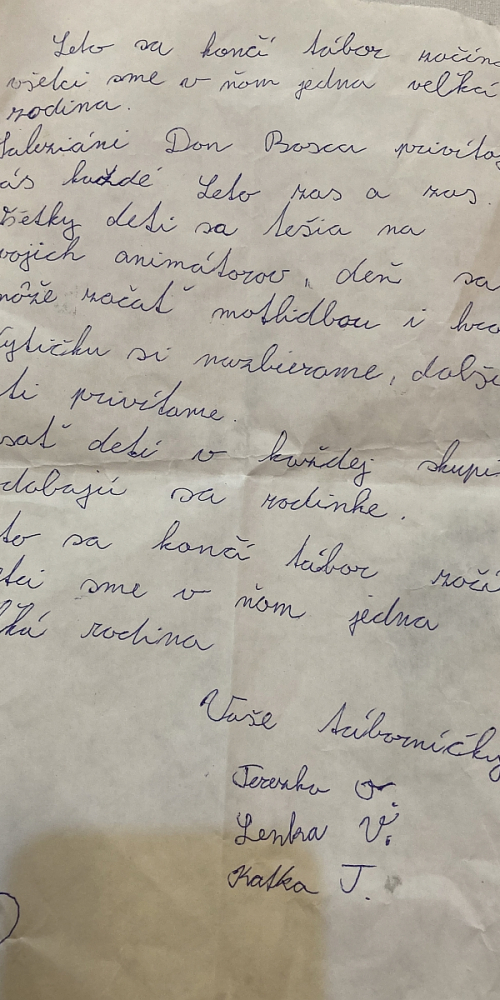 Leto sa končí tábor začína
všetci sme v ňom jedna veľká
rodina.
Saleziáni Don Bosca privítaj
ás každé Leto zas a zas.
všetky deti sa tešia na
vojich animátorov, deň sa
môže začať motlidbou i hra
Kytičku si nazbierame, ďalši
ti privítame.
sať detí v každej skupi
dobajú sa rodinke.
to sa končí tábor začí
tci sme v ňom jedna
ľká rodina
Vaše táborníčky
Terezka O.
Lenka V.
Katka J.